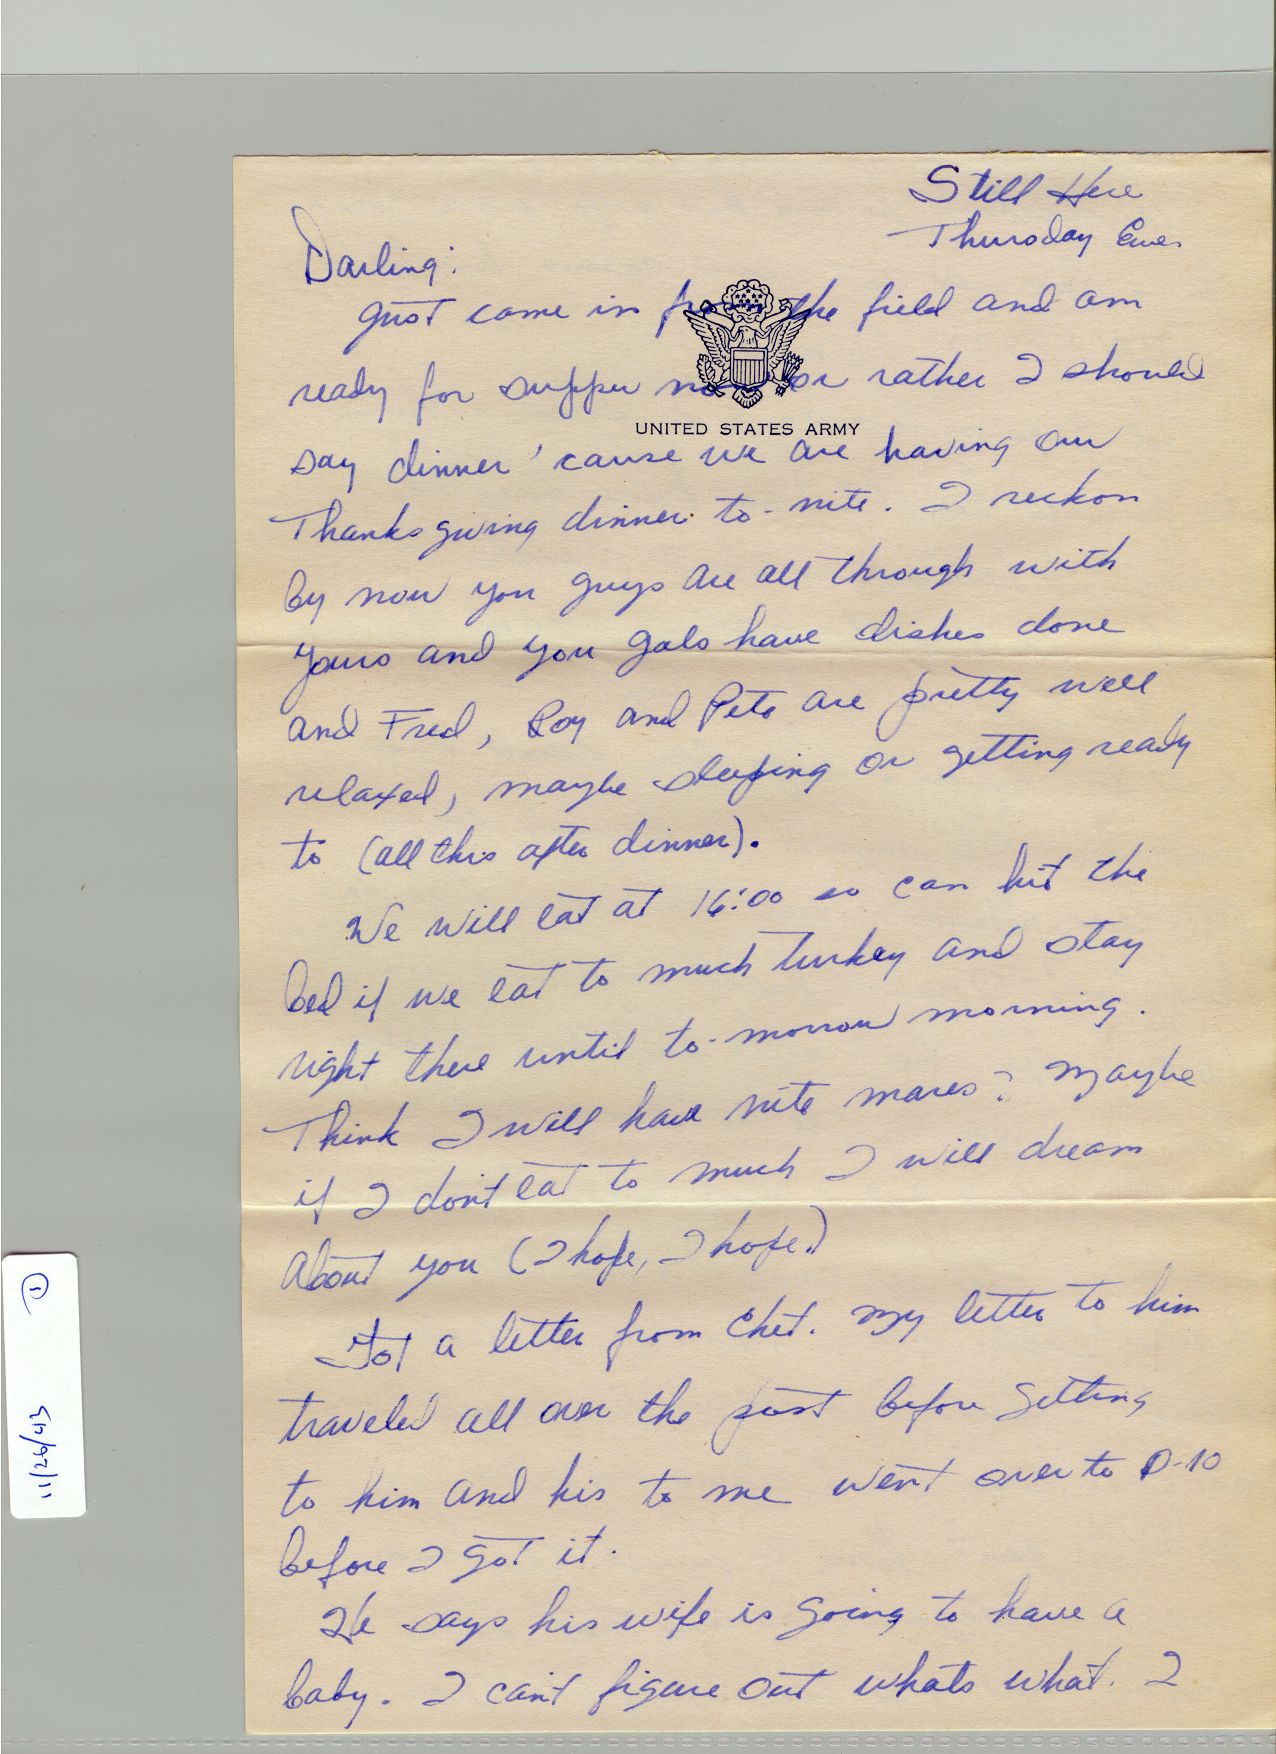 Still Here
Thursday Eve.
Darling:
Just came in from the field and am
ready for supper now or rather I should
UNITED STATES ARMY
say dinner 'cause we are having our
Thanksgiving dinner to-nite. I reckon
by now you guys are all through with
yours and you gals have dishes done
and Fred, Roy and Pete are pretty well
relaxed, maybe sleeping or getting ready
to (all this after dinner).
We will eat at 16:00 so can hit the
bed if we eat to much turkey and stay
right there until to-morrow morning.
Think I will have nite mares? Maybe
if I don't eat to much I will dream
about you (I hope, I hope.)
Got a letter from Chet. My letter to him
traveled all over the post before getting
to him and his to me went over to D-10
before I got it.
He says his wife is going to have a
baby. I can't figure out whats what. I
11/26/43 1